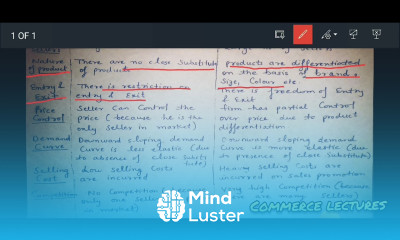 1 OF 1
Nature of product
There are no close Substitute of products
products are differentiated on the basis of brand, Size, Colour etc
Entry & Exit
There is restriction on entry & Exit
There is freedom of Entry & Exit
Price Control
Seller Can Control the price (because he is the only seller in market)
firm has partial Control over price due to product differentiation
Demand Curve
Downward sloping demand Curve is less elastic (due to absence of close Substitute)
Downward sloping demand Curve is more elastic (due to presence of close Substitute)
Selling Cost
Low Selling Costs are incurred
Heavy selling Costs are incurred on Sales promotion
No Competition
only one seller in market)
Very high Competition (because are many sellers)
Mind Luster
COMMERCE LECTURES